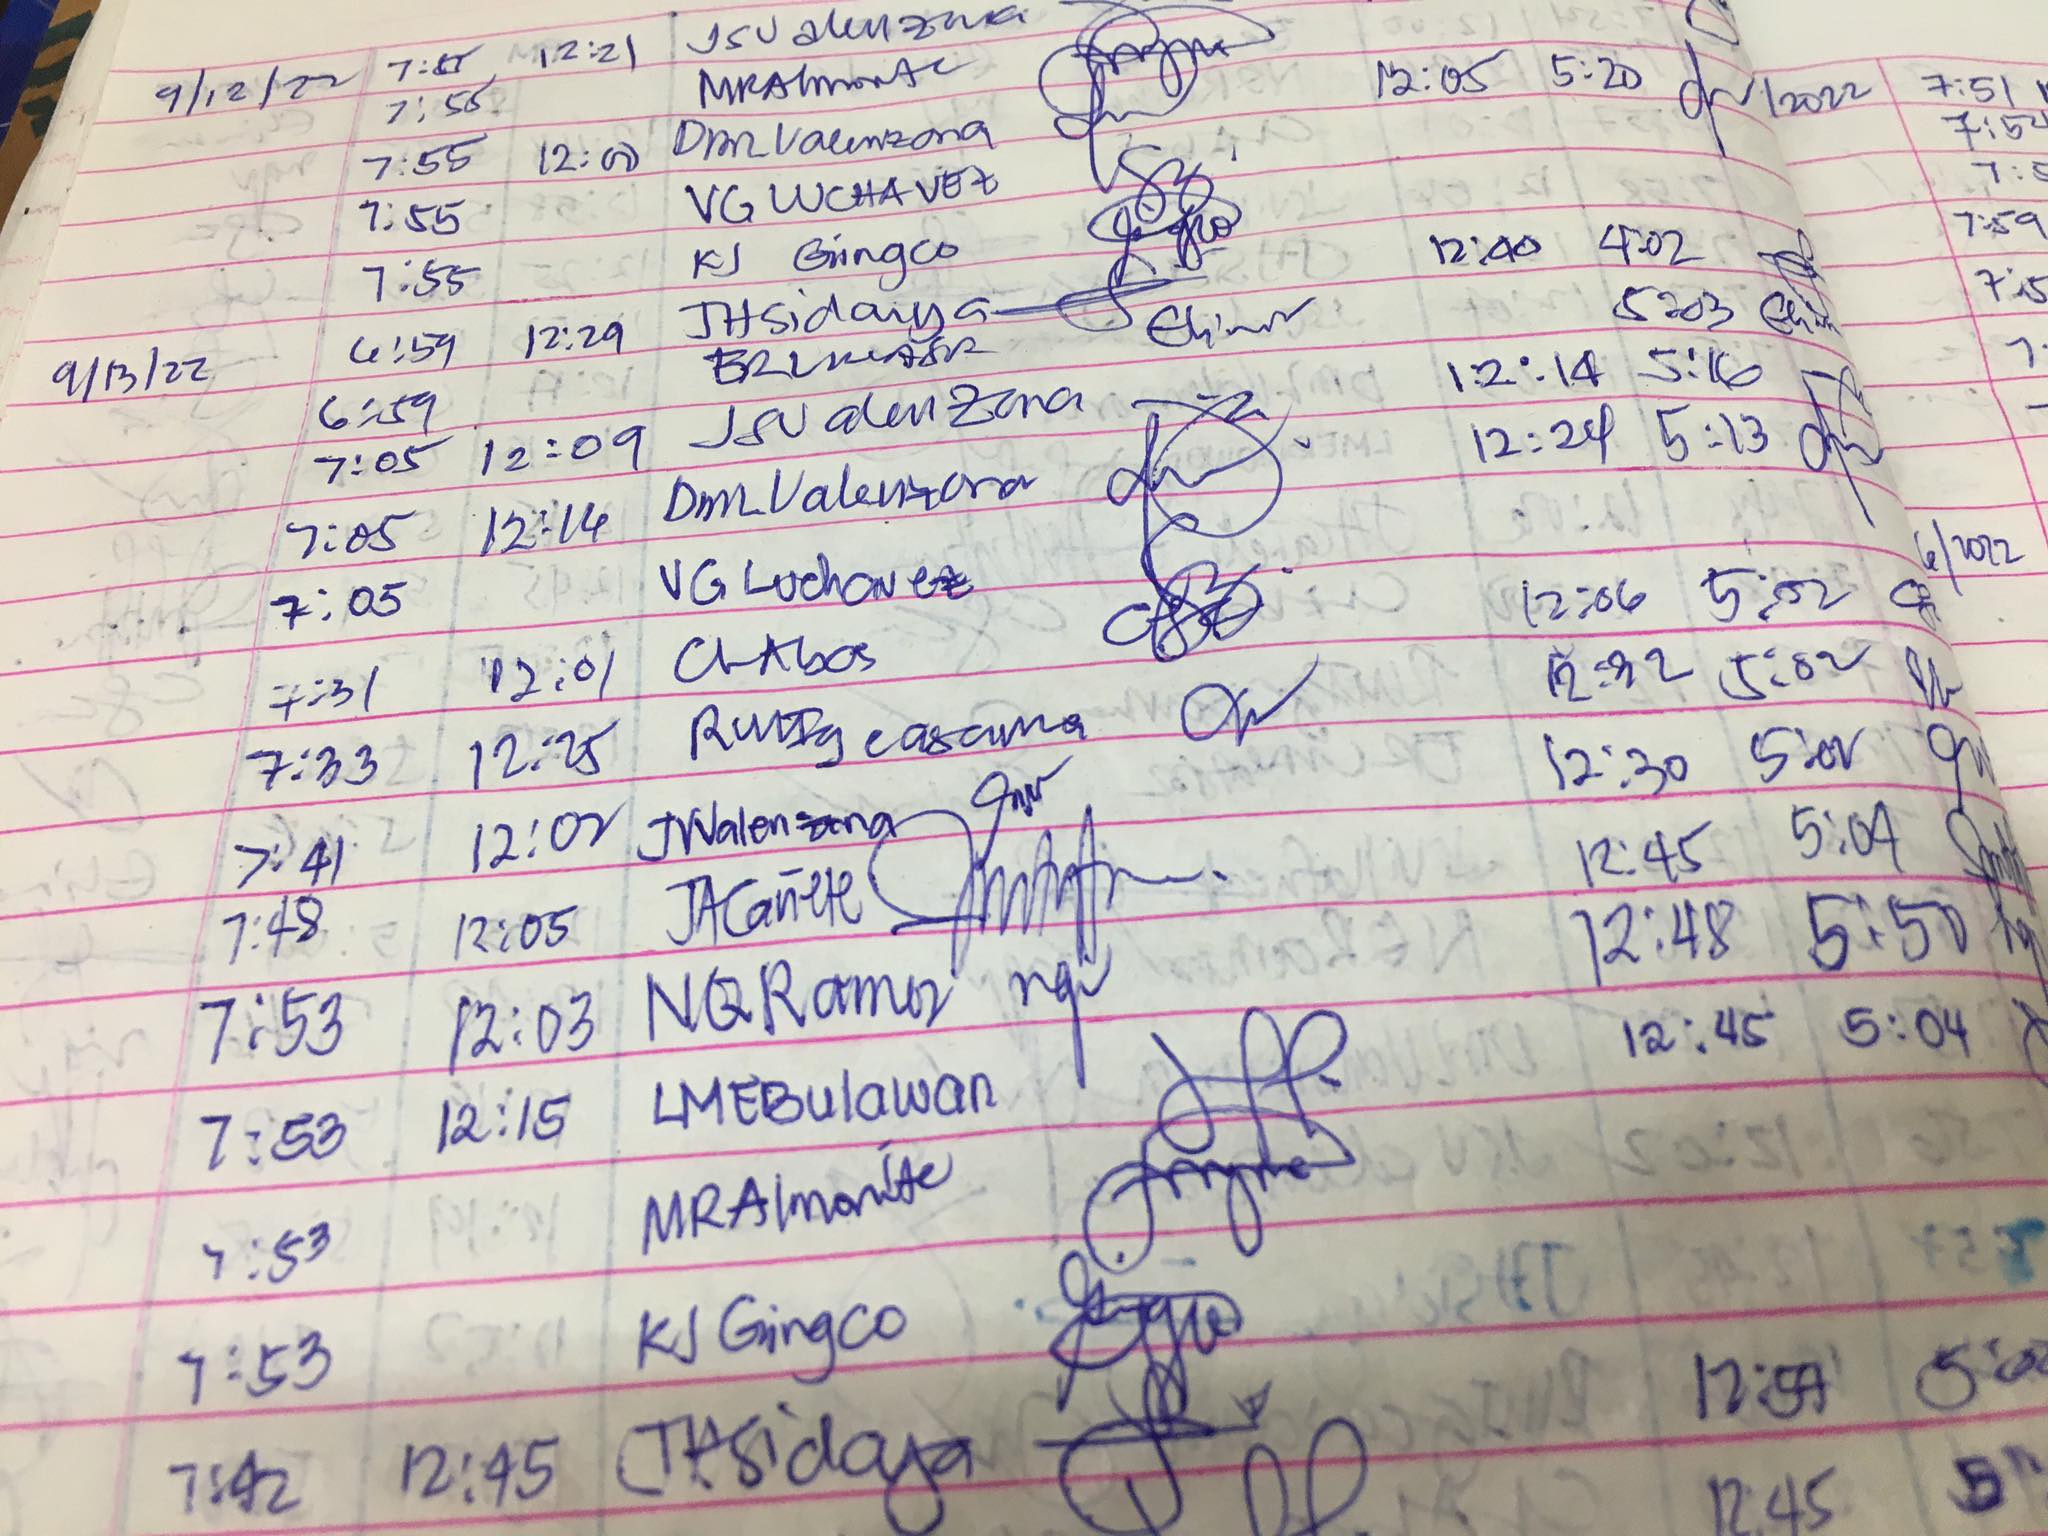 12:21 JSValenzona
9/12/22 7:55 MRAlmonte 12:05 5:20 /2022 7:51
7:55 12:00 DMLValenzona
7:55 VG LUCHAVEZ
7:55 KJ Gingco 12:40 4:02 7:59
9/13/22 6:59 12:29 JHSidaya
6:59 5:03
7:05 12:09 JSValenzona 12:14 5:16
7:05 12:14 DMLValenzona 12:24 5:13
7:05 VG Luchavez 6/2022
7:31 12:01 CLAbos 12:06 5:02
7:33 12:25 5:02
7:41 12:02 JVValenzona 12:30 5:02
7:48 12:05 JACañete 12:45 5:04
7:53 12:03 NQRamoz 12:48 5:50
7:53 12:15 LMEBulawan 12:45 5:04
7:53 MRAlmonte
7:53 KJ Gingco
7:42 12:45 JHSidaya 12:57
12:45